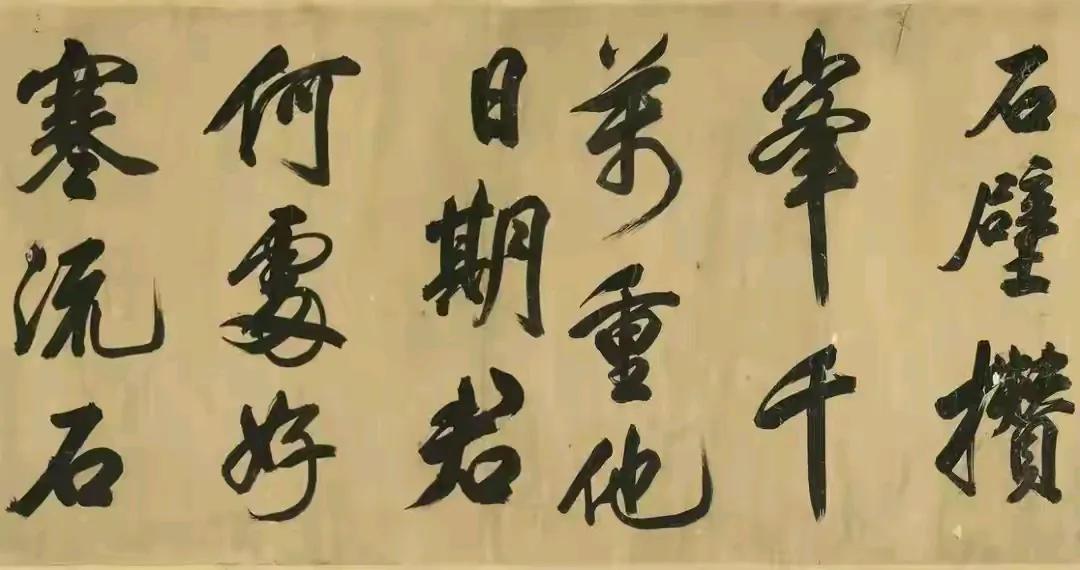 石壁攢
峯千
萬重他
日期君
何處好
寒流石